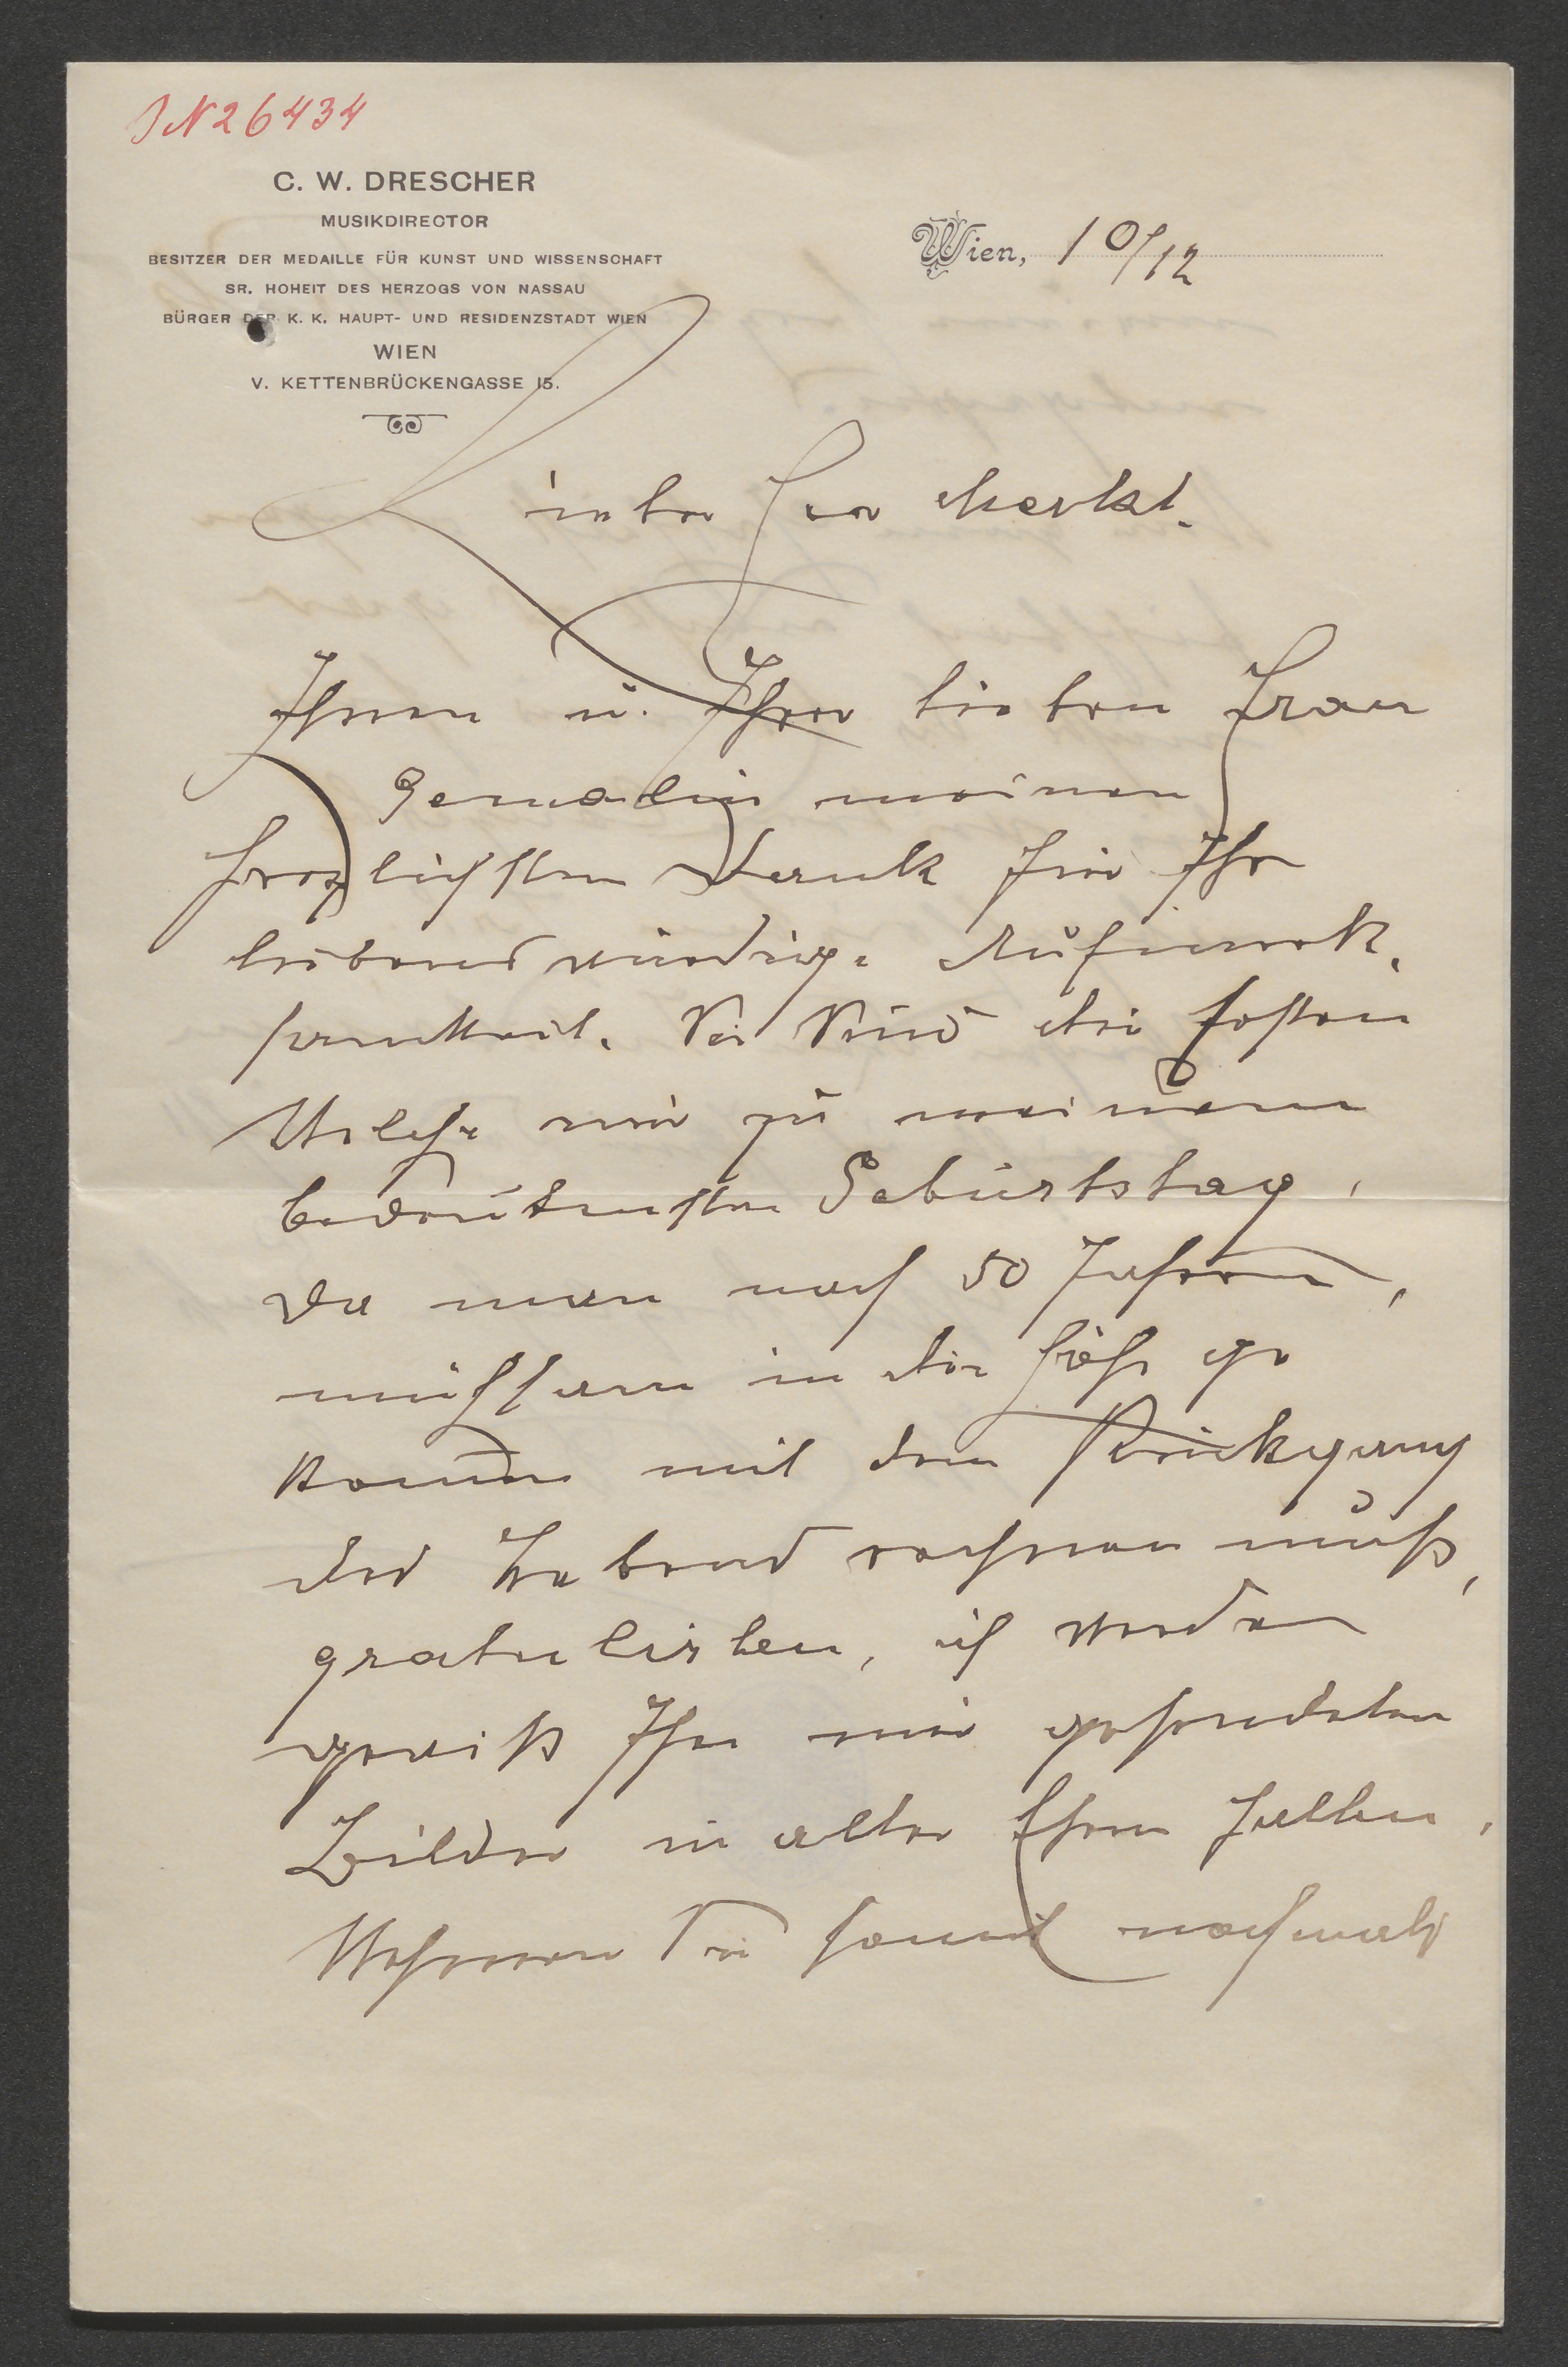 IN 26434
C. W. DRESCHER
MUSIKDIRECTOR
BESITZER DER MEDAILLE FÜR KUNST UND WISSENSCHAFT
SR. HOHEIT DES HERZOGS VON NASSAU
BÜRGER DER K. K. HAUPT- UND RESIDENZSTADT WIEN
WIEN
V. KETTENBRÜCKENGASSE 15.
Wien, 10/12
Lieber Herr Merkl.
Ihnen u. Ihrer lieben Frau
Gemalin meinen
herzlichsten Dank für Ihr
liebenswürdige Aufmerk.
samkeit. Sie sind die ersten
Welche mir zu meinem
bedeutensten Geburtstag,
da man nach 50 Jahren,
mühsam in die Höhe ge
kommen mit dem Rückgang
des Lebens rechnen muß,
gratulirten, ich werde
gewiß Ihr mir gesendeten
Bilder in alter Ehren halten,
Nehmen Sie somit nochmals